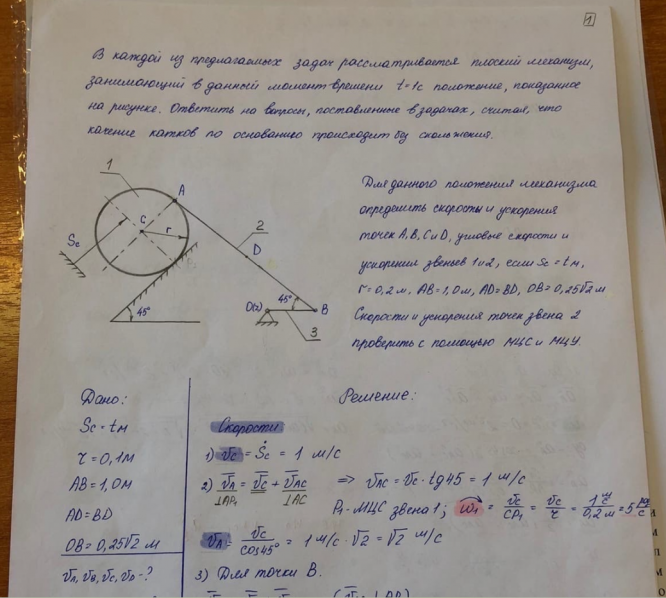 1
В каждой из предлагаемых задач рассматривается плоский механизм,
занимающий в данный момент времени t=1c положение, показанное
на рисунке. Ответить на вопросы, поставленные в задачах, считая, что
качение катков по основанию происходит без скольжения.
1
A
C
r
Sc
2
D
45°
45°
O(z)
B
3
Для данного положения механизма
определить скорости и ускорения
точек A, B, C и D, угловые скорости и
ускорения звеньев 1 и 2, если Sc = t м,
r=0,2 м, AB=1,0 м, AD=BD, OB=0,25√2 м
Скорости и ускорения точек звена 2
проверить с помощью МЦС и МЦУ.
Дано:
Sc = t м
r = 0,1 м
AB = 1,0 м
AD = BD
OB = 0,25√2 м
vA, vB, vC, vD - ?
Решение:
Скорости
1) vC = Ṡc = 1 м/с
2) vA = vC + vAC => vAC = vC · tg45 = 1 м/с
⊥AP₁ ⊥AC
P₁ - МЦС звена 1; ω₁ = vC/CP₁ = vC/r = 1 м/с / 0,2 м = 5 рад/с
vA = vC/cos45° = 1 м/с · √2 = √2 м/с
3) Для точки B.